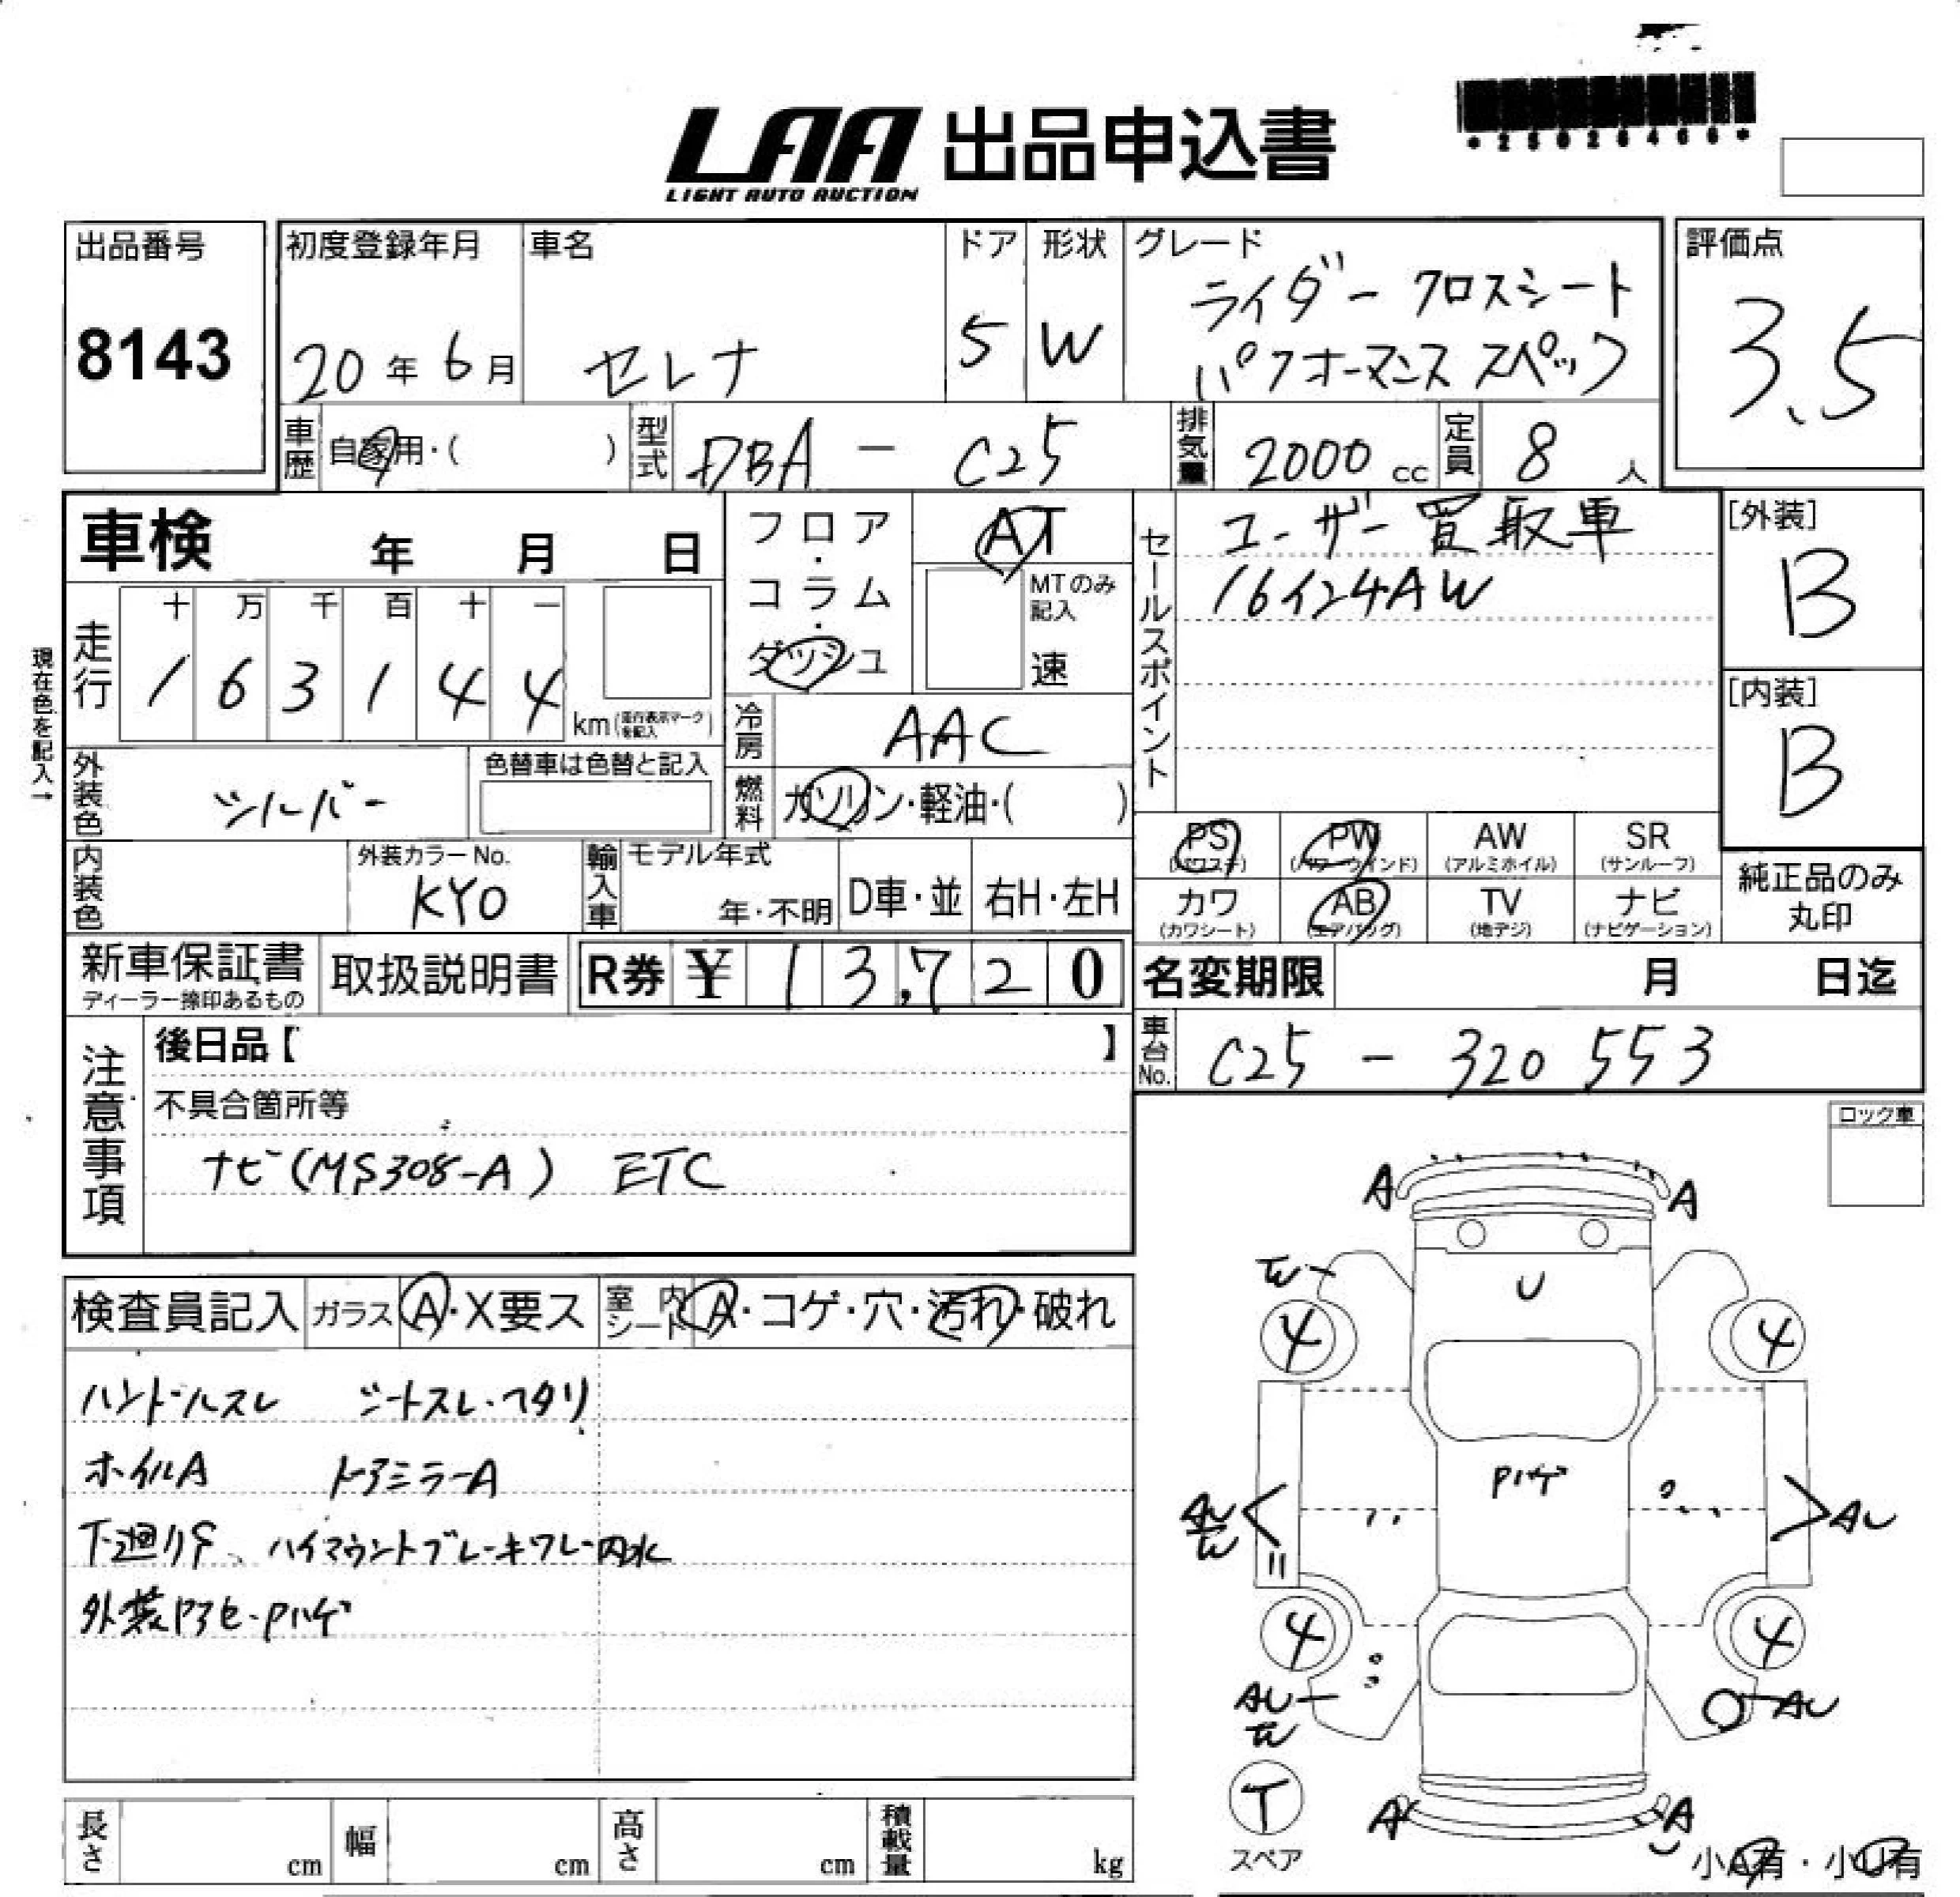 LAA 出品申込書
LIGHT AUTO AUCTION
*25026466*
出品番号
8143
初度登録年月
20年6月
車名
セレナ
ドア
5
形状
W
グレード
ライダー クロスシート
パフォーマンス スペック
評価点
3.5
車歴 自家用・( )
型式 DBA - C25
排気量 2000 cc
定員 8 人
車検 年 月 日
フロア・コラム・ダッシュ
AT
MTのみ記入
速
走行
十 万 千 百 十 一
1 6 3 1 4 4
km(走行表示マークを記入)
現在色を記入→
冷房 AAC
外装色 シルバー
色替車は色替と記入
燃料 ガソリン・軽油・( )
セールスポイント
ユーザー買取車
16インチAW
[外装]
B
[内装]
B
内装色
外装カラーNo.
KY0
輸入車
モデル年式
年・不明
D車・並
右H・左H
PS (パワステ)
PW (パワーウインド)
AW (アルミホイル)
SR (サンルーフ)
カワ (カワシート)
AB (エアバッグ)
TV (地デジ)
ナビ (ナビゲーション)
純正品のみ丸印
新車保証書
ディーラー捺印あるもの
取扱説明書
R券 ¥ 13,720
名変期限 月 日迄
車台No. C25 - 320553
注意事項
後日品【 】
不具合箇所等
ナビ(MS308-A) ETC
ロック車
検査員記入
ガラス A・X要ス
室内シート A・コゲ・穴・汚れ・破れ
ハンドルスレ シートスレ・ヘタリ
ホイルA ドアミラーA
下廻りS、ハイマウントブレーキワレ・内水
外装Pアセ・Pハゲ
A A
U
4 4
Pハゲ
AU
4 4
AU AU
T
スペア
A A
小A有・小U有
長さ cm
幅 cm
高さ cm
積載量 kg